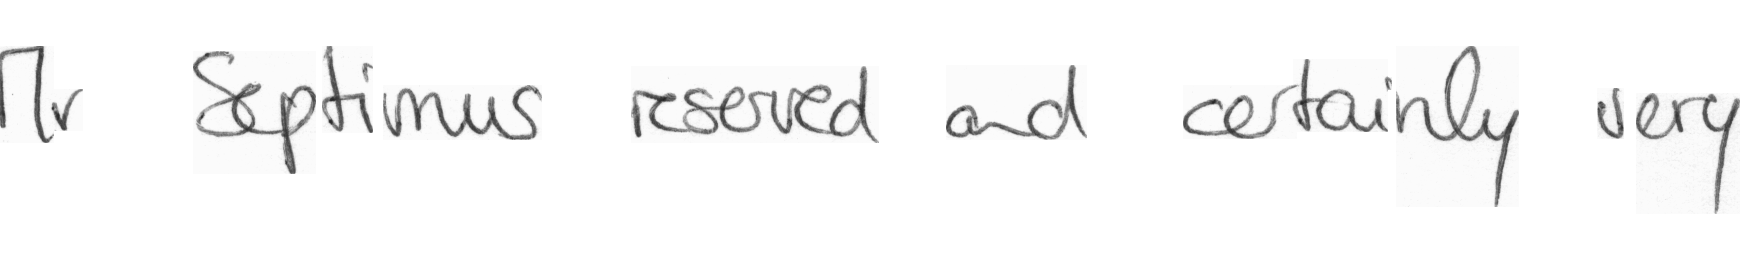 Mr Septimus reserved and certainly very